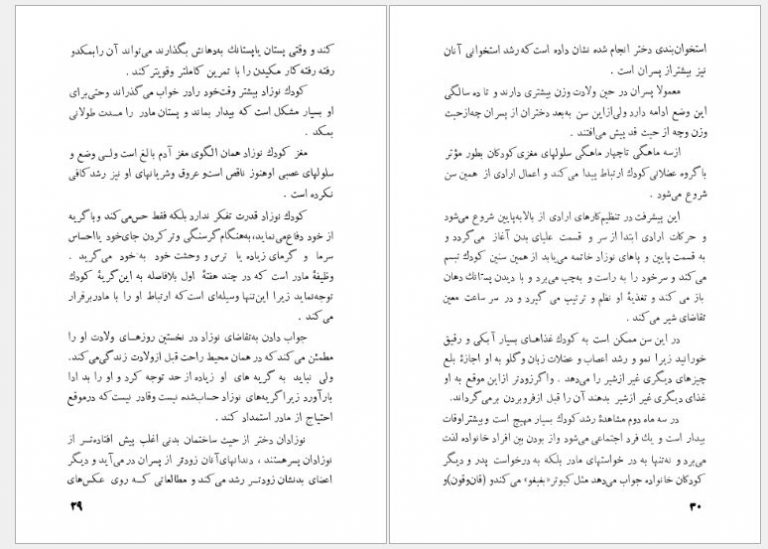 کند و وقتی پستان یا پستانك به دهانش بگذارند می‌تواند آن را بمکد و
رفته رفته کار مکیدن را با تمرین کاملتر و قویتر کند .
کودك نوزاد بیشتر وقت خود را در خواب می‌گذراند و حتی برای
او بسیار مشکل است که بیدار بماند و پستان مادر را مدت طولانی
بمکد .
مغز کودك نوزاد همان الگوی مغز آدم بالغ است ولی وضع و
سلولهای عصبی او هنوز ناقص است و عروق و شریانهای او نیز رشد کافی
نکرده است .
کودك نوزاد قدرت تفکر ندارد بلکه فقط حس می‌کند و با گریه
از خود دفاع می‌نماید، به هنگام گرسنگی و تر کردن جای خود یا احساس
سرما و گرمای زیاده یا ترس و وحشت خود به خود می‌گرید .
وظیفهٔ مادر است که در چند هفتهٔ اول بلافاصله به این گریهٔ کودك
توجه نماید زیرا این تنها وسیله‌ای است که ارتباط او را با مادر برقرار
می‌کند .
جواب دادن به تقاضای نوزاد در نخستین روزهای ولادت او را
مطمئن می‌کند که در همان محیط راحت قبل از ولادت زندگی می‌کند.
ولی نباید به گریه های او زیاده از حد توجه کرد و او را بد ادا
بار آورد زیرا گریه‌های نوزاد حساب شده نیست و قادر نیست که در موقع
احتیاج از مادر استمداد کند .
نوزادان دختر از حیث ساختمان بدنی اغلب پیش افتاده‌تر از
نوزادان پسر هستند ، دندانهای آنان زودتر از پسران در می‌آید و دیگر
اعضای بدنشان زودتر رشد می‌کند و مطالعاتی که روی عکس‌های
۲۹
استخوان‌بندی دختر انجام شده نشان داده است که رشد استخوانی آنان
نیز بیشتر از پسران است .
معمولا پسران در حین ولادت وزن بیشتری دارند و تا ده سالگی
این وضع ادامه دارد ولی از این سن به بعد دختران از پسران چه از حیث
وزن و چه از حیث قد پیش می‌افتند .
از سه ماهگی تا چهار ماهگی سلولهای مغزی کودکان بطور مؤثر
با گروه عضلانی کودك ارتباط پیدا می‌کند و اعمال ارادی از همین سن
شروع می‌شود .
این پیشرفت در تنظیم کارهای ارادی از بالا به پایین شروع می‌شود
و حرکات ارادی ابتدا از سر و قسمت علیای بدن آغاز می‌گردد و
به قسمت پایین و پاهای نوزاد خاتمه می‌یابد از همین سنین کودك تبسم
می‌کند و سر خود را به راست و به چپ می‌برد و با دیدن پستانك دهان
باز می کند و تغذیهٔ او نظم و ترتیب می گیرد و در سر ساعت معین
تقاضای شیر می‌کند .
در این سن ممکن است به کودك غذاهای بسیار آبکی و رقیق
خورانید زیرا نمو و رشد اعصاب و عضلات زبان و گلو به او اجازهٔ بلع
چیزهای دیگری غیر از شیر را می‌دهد . واگر زودتر از این موقع به او
غذای دیگری غیر از شیر بدهند آن را قبل از فرو بردن برمی‌گرداند.
در سه ماه دوم مشاهدهٔ رشد کودك بسیار مهیج است و بیشتر اوقات
بیدار است و یك فرد اجتماعی می‌شود و از بودن بین افراد خانواده لذت
می‌برد و نه تنها به در خواستهای مادر بلکه به درخواست پدر و دیگر
کودکان خانواده جواب می‌دهد مثل کبوتر «بغبغو» می کند و (قان وقون) و
۳۰